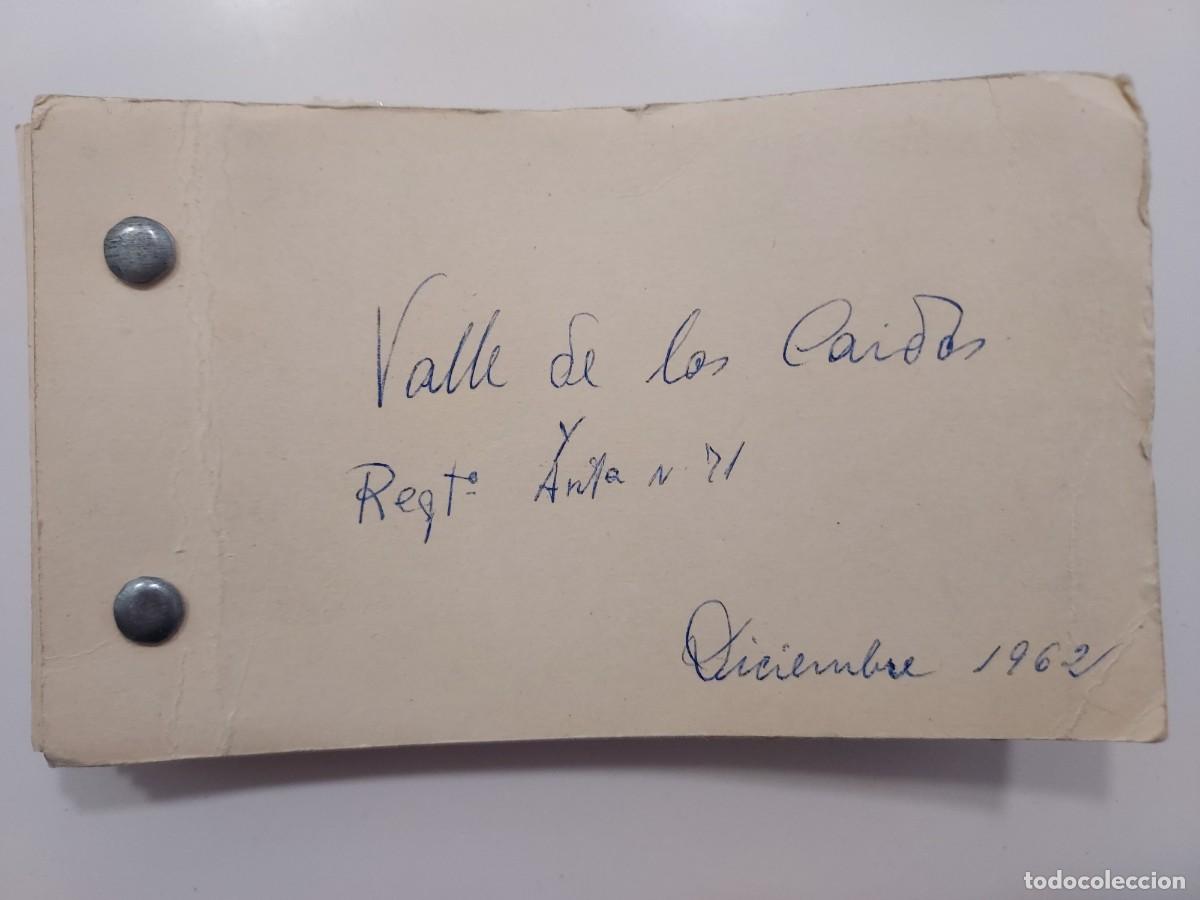 Valle de los Caidos
Regtº Arttª N. 71
Diciembre 1962
todocoleccion